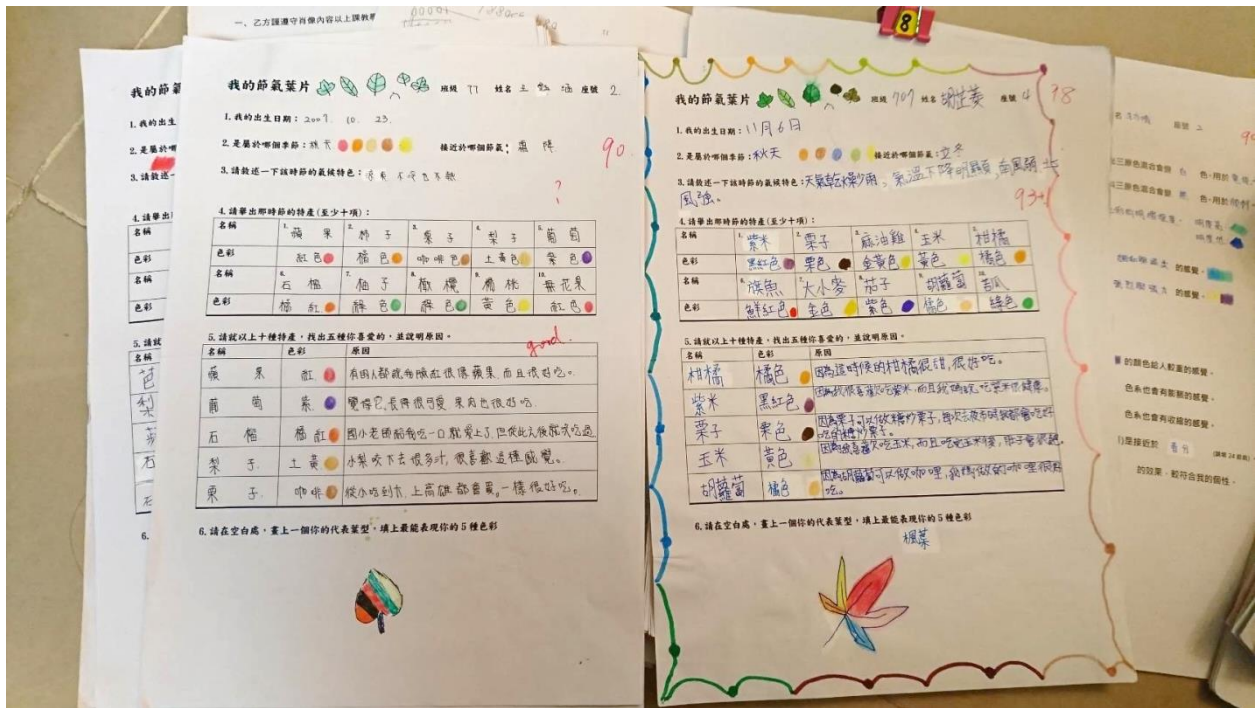 一、乙方
我的節氣葉片 班級 77 姓名 王 座號 2.
1.我的出生日期：2007. 10. 23.
2.是屬於哪個季節：秋天 接近於哪個節氣：霜降
90.
3.請敘述一下該時節的氣候特色：
?
4.請舉出那時節的特產(至少十項)：
名稱 1. 蘋果 2. 柿子 3. 栗子 4. 梨子 5. 葡萄
色彩 紅色 橘色 咖啡色 土黃色 紫色
名稱 6. 石榴 7. 柚子 8. 橄欖 9. 楊桃 10. 無花果
色彩 橘紅 綠色 綠色 黃色 紅色
5.請就以上十種特產，找出五種你喜愛的，並說明原因。
good.
名稱 色彩 原因
蘋果 紅 有因人都說我臉紅很像蘋果，而且很好吃。
葡萄 紫 覺得它長得很可愛 果肉也很好吃
石榴 橘紅 國小老師給我吃一口就愛上了，但從此之後就沒吃過
梨子. 土黃 小梨咬下去很多汁，很喜歡這種感覺。
栗子. 咖啡
6.請在空白處，畫上一個你的代表葉型，填上最能表現你的5種色彩
8
我的節氣葉片 班級 707 姓名 胡芷菱 座號 4
98
1.我的出生日期：11月6日
2.是屬於哪個季節：秋天 接近於哪個節氣：立冬
3.請敘述一下該時節的氣候特色：天氣乾燥少雨，氣溫下降明顯，南風弱北
風強。
93+1
4.請舉出那時節的特產(至少十項)：
名稱 1. 紫米 2. 栗子 3. 麻油雞 4. 玉米 5. 柑橘
色彩 黑紅色 栗色 金黃色 黃色 橘色
名稱 6. 旗魚 7. 大小麥 8. 茄子 9. 胡蘿蔔 10. 苦瓜
色彩 鮮紅色 金色 紫色 橘色 綠色
5.請就以上十種特產，找出五種你喜愛的，並說明原因。
名稱 色彩 原因
柑橘 橘色 因為這時候的柑橘很甜，很好吃。
紫米 黑紅色 因為我很喜歡吃紫米，而且我媽說，吃紫米很健康。
栗子 栗色 因為栗子可以做糖炒栗子，每次去夜市時我都會吃好
吃的糖炒栗子。
玉米 黃色 因為我喜歡吃玉米，而且吃完玉米後，肚子會很飽。
胡蘿蔔 橘色 因為胡蘿蔔可以做咖哩，我媽做的咖哩很好
吃。
6.請在空白處，畫上一個你的代表葉型，填上最能表現你的5種色彩
楓葉
我的節氣
1.我的出生
2.是屬於
3.請敘述一
4.請舉出
名稱
色彩
名稱
色彩
5.請就
名稱
芭
梨
石
石
6.
座號
的感覺，
的感覺。
的顏色給人較重的感覺，
色系也會有膨脹的感覺，
色系也會有收縮的感覺，
是接近於 春分
的效果，較符合我的個性。